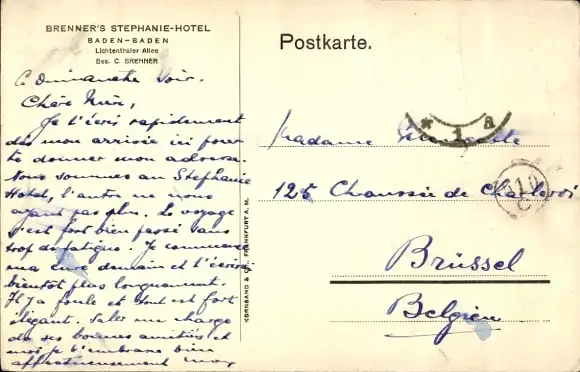 BRENNER'S STEPHANIE-HOTEL
BADEN-BADEN
Lichtenthaler Allee
Bes. C. BRENNER
Postkarte.
Ce Dimanche soir.
Chère
Je t'écris rapidement
dès mon arrivée ici pour
te donner mon adresse.
Nous sommes au Stephanie
Hotel, l'autre ne nous
ayant pas plu. Le voyage
s'est fort bien passé sans
trop de fatigue. Je commence
ma cure demain et t'écrirai
bientôt plus longuement.
Il y a foule et tout est fort
élégant. me charge
de ses bonnes amitiés et
moi je t'embrasse bien
affectueusement
KORNSAND & Co., FRANKFURT A. M.
Madame
* 1 a
125 Chaussée de Charleroi
Brüssel
Belgien